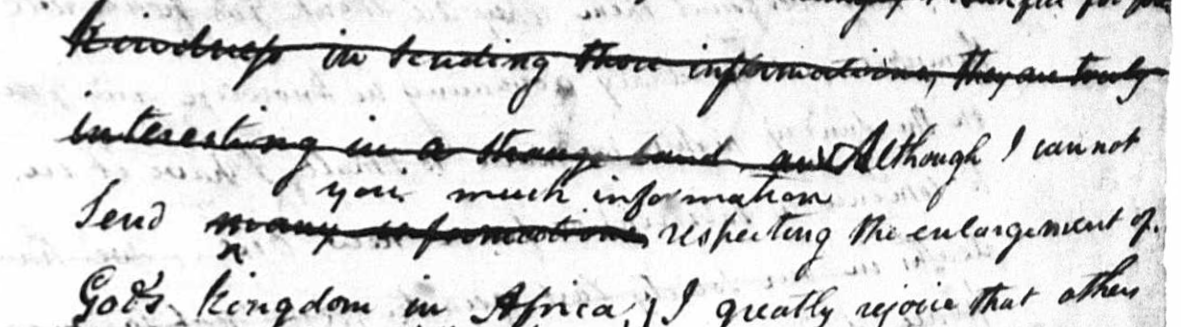 kindness in sending those informations, they are truly
interesting in a strange land and Although I cannot
you much information
Send many informations respecting the enlargement of
God's kingdom in Africa, I greatly rejoice that others